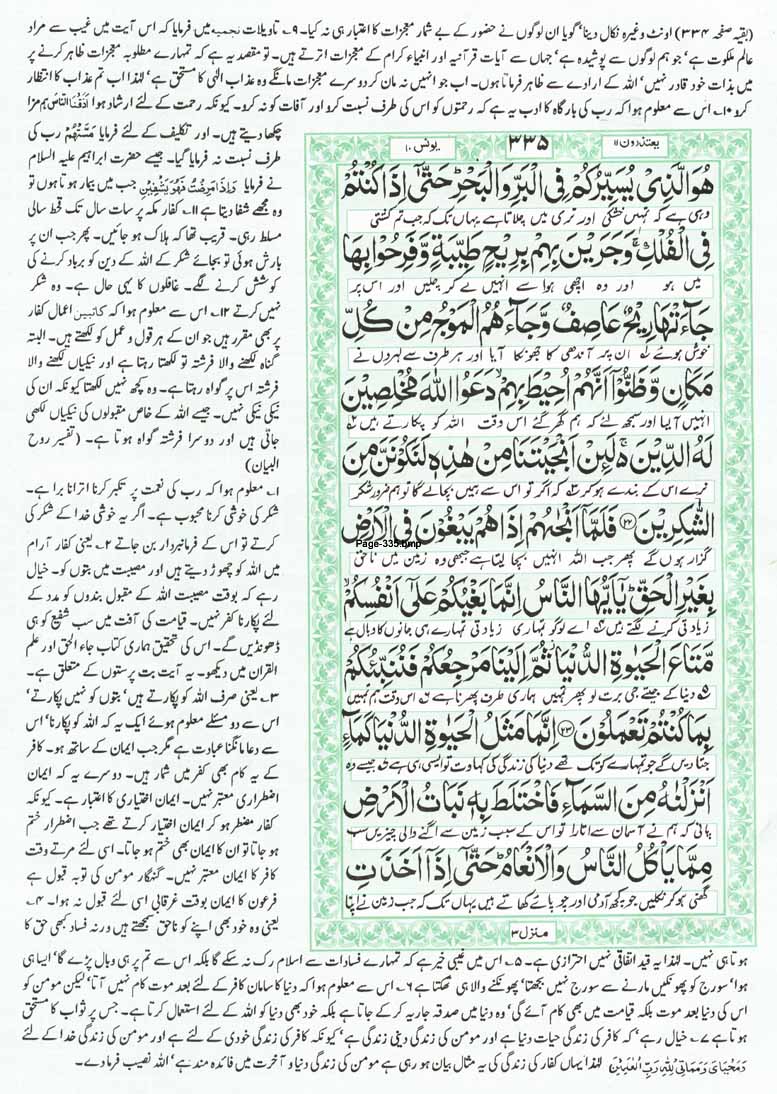 (بقیہ صفحہ ۳۳۴) اونٹ وغیرہ نکال دینا' گویا ان لوگوں نے حضور کے بے شمار معجزات کا اعتبار ہی نہ کیا۔ ۹؎ تاویلات نجمیہ میں فرمایا کہ اس آیت میں غیب سے مراد
عالم ملکوت ہے' جو ہم لوگوں سے پوشیدہ ہے' جہاں سے آیات قرآنیہ اور انبیاء کرام کے معجزات اترتے ہیں۔ تو مقصد یہ ہے کہ تمہارے مطلوبہ معجزات ظاہر کرنے پر
میں بذات خود قادر نہیں' اللہ کے ارادے سے ظاہر فرماتا ہوں۔ اب جو انہیں نہ مان کر دوسرے معجزات مانگے وہ عذاب الٰہی کا مستحق ہے' لہٰذا اب تم عذاب کا انتظار
کرو ۱۰؎ اس سے معلوم ہوا کہ رب کی بارگاہ کا ادب یہ ہے کہ رحمتوں کو اس کی طرف نسبت کرو اور آفات کو نہ کرو۔ کیونکہ رحمت کے لئے ارشاد ہوا اَذَقْنَا النَّاسَ ہم مزا
چکھا دیتے ہیں۔ اور تکلیف کے لئے فرمایا مَسَّتْهُمْ رب کی
طرف نسبت نہ فرمایا گیا۔ جیسے حضرت ابراہیم علیہ السلام
نے فرمایا وَاِذَا مَرِضْتُ فَهُوَ يَشْفِيْنِ جب میں بیمار ہوتا ہوں تو
وہ مجھے شفا دیتا ہے ۱۱؎ کفار مکہ پر سات سال تک قحط سالی
مسلط رہی۔ قریب تھا کہ ہلاک ہو جائیں۔ پھر جب ان پر
بارش ہوئی تو بجائے شکر کے اللہ کے دین کو برباد کرنے کی
کوشش کرنے لگے۔ غافلوں کا یہی حال ہے۔ وہ شکر
نہیں کرتے ۱۲؎ اس سے معلوم ہوا کہ کاتبین اعمال کفار
پر بھی مقرر ہیں جو ان کے ہر قول و عمل کو لکھتے ہیں۔ البتہ
گناہ لکھنے والا فرشتہ تو لکھتا رہتا ہے اور نیکیاں لکھنے والا
فرشتہ اس پر گواہ رہتا ہے۔ وہ کچھ نہیں لکھتا کیونکہ ان کی
نیکی نیکی نہیں۔ جیسے اللہ کے خاص مقبولوں کی نیکیاں لکھی
جاتی ہیں اور دوسرا فرشتہ گواہ ہوتا ہے۔ (تفسیر روح
البیان)
۱؎ معلوم ہوا کہ رب کی نعمت پر تکبر کرنا اترانا برا ہے۔
شکر کی خوشی کرنا محبوب ہے۔ اگر یہ خوشی خدا کے شکر کی
کرتے تو اس کے فرمانبردار بن جاتے ۲؎ یعنی کفار آرام
میں اللہ کو چھوڑ دیتے ہیں اور مصیبت میں بتوں کو۔ خیال
رہے کہ بوقت مصیبت اللہ کے مقبول بندوں کو مدد کے
لئے پکارنا کفر نہیں۔ قیامت کی آفت میں سب شفیع کو ہی
ڈھونڈیں گے۔ اس کی تحقیق ہماری کتاب جاء الحق اور علم
القران میں دیکھو۔ یہ آیت بت پرستوں کے متعلق ہے۔
۳؎ یعنی صرف اللہ کو پکارتے ہیں' بتوں کو نہیں پکارتے'
اس سے دو مسئلے معلوم ہوئے ایک یہ کہ اللہ کو پکارنا' اس
سے دعا مانگنا عبادت ہے مگر جب ایمان کے ساتھ ہو۔ کافر
کے یہ کام بھی کفر میں شمار ہیں۔ دوسرے یہ کہ ایمان
اضطراری معتبر نہیں۔ ایمان اختیاری کا اعتبار ہے۔ کیونکہ
کفار مضطر ہو کر ایمان اختیار کرتے تھے جب اضطرار ختم
ہو جاتا تو ان کا ایمان بھی ختم ہو جاتا۔ اسی لئے مرتے وقت
کافر کا ایمان معتبر نہیں۔ گنہگار مومن کی توبہ قبول ہے
فرعون کا ایمان بوقت غرقابی اسی لئے قبول نہ ہوا۔ ۴؎
یعنی وہ خود بھی اپنے کو ناحق سمجھتے ہیں ورنہ فساد کبھی حق کا
یعتذرون ۱۱
۳۳۵
یونس ۱۰
هُوَ الَّذِيْ يُسَيِّرُكُمْ فِي الْبَرِّ وَالْبَحْرِ حَتّٰى اِذَا كُنْتُمْ
وہی ہے کہ تمہیں خشکی اور تری میں چلاتا ہے یہاں تک کہ جب تم کشتی
فِي الْفُلْكِ وَجَرَيْنَ بِهِمْ بِرِيْحٍ طَيِّبَةٍ وَّفَرِحُوْا بِهَا
میں ہو اور وہ اچھی ہوا سے انہیں لے کر چلیں اور اس پر
جَآءَتْهَا رِيْحٌ عَاصِفٌ وَّجَآءَهُمُ الْمَوْجُ مِنْ كُلِّ
خوش ہوئے ان پر آندھی کا جھونکا آیا اور ہر طرف سے لہروں نے
مَكَانٍ وَّظَنُّوْٓا اَنَّهُمْ اُحِيْطَ بِهِمْ دَعَوُا اللّٰهَ مُخْلِصِيْنَ
انہیں آ لیا اور سمجھ لئے کہ ہم گھر گئے اس وقت اللہ کو پکارتے ہیں
لَهُ الدِّيْنَ لَئِنْ اَنْجَيْتَنَا مِنْ هٰذِهٖ لَنَكُوْنَنَّ مِنَ
نرے اس کے بندے ہو کر کہ اگر تو اس سے ہمیں بچا لے گا تو ہم ضرور شکر
الشّٰكِرِيْنَ ۲۲ فَلَمَّآ اَنْجٰىهُمْ اِذَا هُمْ يَبْغُوْنَ فِي الْاَرْضِ
Page-335.bmp
گزار ہوں گے پھر جب اللہ انہیں بچا لیتا ہے جبھی وہ زمین میں ناحق
بِغَيْرِ الْحَقِّ يٰٓاَيُّهَا النَّاسُ اِنَّمَا بَغْيُكُمْ عَلٰٓى اَنْفُسِكُمْ
زیادتی کرنے لگتے ہیں اے لوگو تمہاری زیادتی تمہارے ہی جانوں کا وبال ہے
مَّتَاعَ الْحَيٰوةِ الدُّنْيَا ثُمَّ اِلَيْنَا مَرْجِعُكُمْ فَنُنَبِّئُكُمْ
دنیا کے جیتے جی برت لو پھر تمہیں ہماری طرف پھرنا ہے اس وقت ہم تمہیں
بِمَا كُنْتُمْ تَعْمَلُوْنَ ۲۳ اِنَّمَا مَثَلُ الْحَيٰوةِ الدُّنْيَا كَمَآءٍ
جتا دیں گے جو تمہارے کرتک تھے دنیا کی زندگی کی کہاوت تو ایسی ہی ہے جیسے وہ
اَنْزَلْنٰهُ مِنَ السَّمَآءِ فَاخْتَلَطَ بِهٖ نَبَاتُ الْاَرْضِ
پانی کہ ہم نے آسمان سے اتارا تو اس کے سبب زمین سے اگنے والی چیزیں سب
مِمَّا يَاْكُلُ النَّاسُ وَالْاَنْعَامُ حَتّٰىٓ اِذَآ اَخَذَتِ
گھنی ہو کر نکلیں جو کچھ آدمی اور چوپائے کھاتے ہیں یہاں تک کہ جب زمین نے اپنا
منزل ۳
ہوتا ہی نہیں۔ لہٰذا یہ قید اتفاقی نہیں احترازی ہے۔ ۵؎ اس میں غیبی خبر ہے کہ تمہارے فسادات سے اسلام رک نہ سکے گا بلکہ اس سے تم پر ہی وبال پڑے گا' ایسا ہی
ہوا' سورج کو پھونکیں مارنے سے سورج نہیں بجھتا' پھونکنے والا ہی تھکتا ہے ۶؎ اس سے معلوم ہوا کہ دنیا کا سامان کافر کے لئے بعد موت کام نہیں آتا' لیکن مومن کو
اس کی دنیا بعد موت بلکہ قیامت میں بھی کام آئے گی' وہ دنیا میں صدقہ جاریہ کر کے جاتا ہے بلکہ خود بھی دنیا کو اللہ کے لئے استعمال کرتا ہے۔ جس پر ثواب کا مستحق
ہوتا ہے ۷؎ خیال رہے' کہ کافر کی زندگی حیات دنیا ہے اور مومن کی زندگی دینی زندگی ہے' کیونکہ کافر کی زندگی خودی کے لئے ہے اور مومن کی زندگی خدا کے لئے
وَمَحْيَايَ وَمَمَاتِيْ لِلّٰهِ رَبِّ الْعٰلَمِيْنَ لہٰذا یہاں کفار کی زندگی کی یہ مثال بیان ہو رہی ہے مومن کی زندگی دنیا و آخرت میں فائدہ مند ہے' اللہ نصیب فرما دے۔